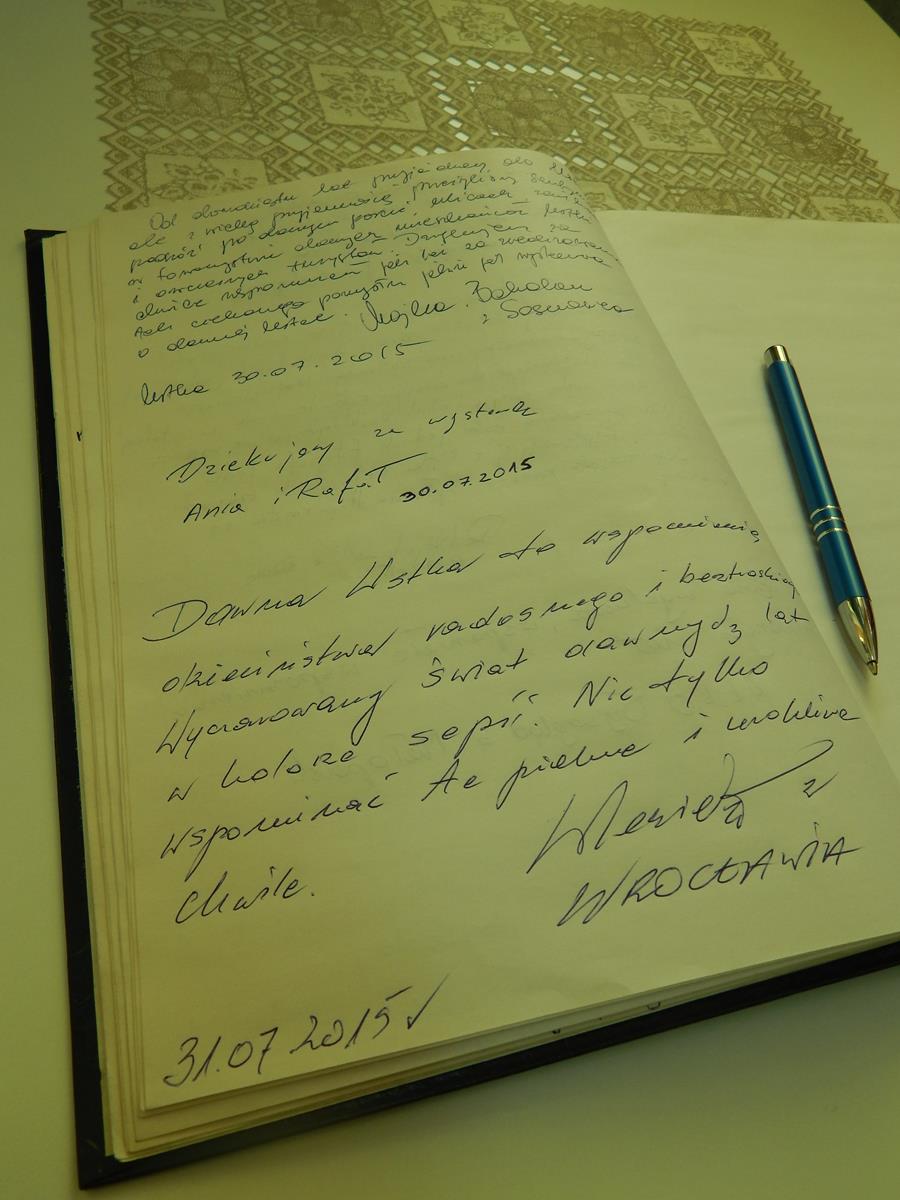 Od dwudziestu lat przyjeżdżam do
ale z wielką przyjemnością przeżyliśmy
podróż po dawnych ulicach
w towarzystwie dawnych mieszkańców Ustki
i ówczesnych turystów. Dziękujemy za
chwile wspomnień jak też za zrealizowanie
tak ciekawego pomysłu jakim jest wystawa
o dawnej Ustce. Majka
z Sosnowca
Ustka 30.07.2015
Dziękujemy za wystawę
Ania i Rafał 30.07.2015
Dawna Ustka to wspomnienie
dzieciństwa radosnego i beztroskiego
Wyczarowany świat dawnych lat
w kolorze sepii. Nie tylko
wspominać te piękne i urokliwe
chwile.
z
WROCŁAWIA
31.07 2015